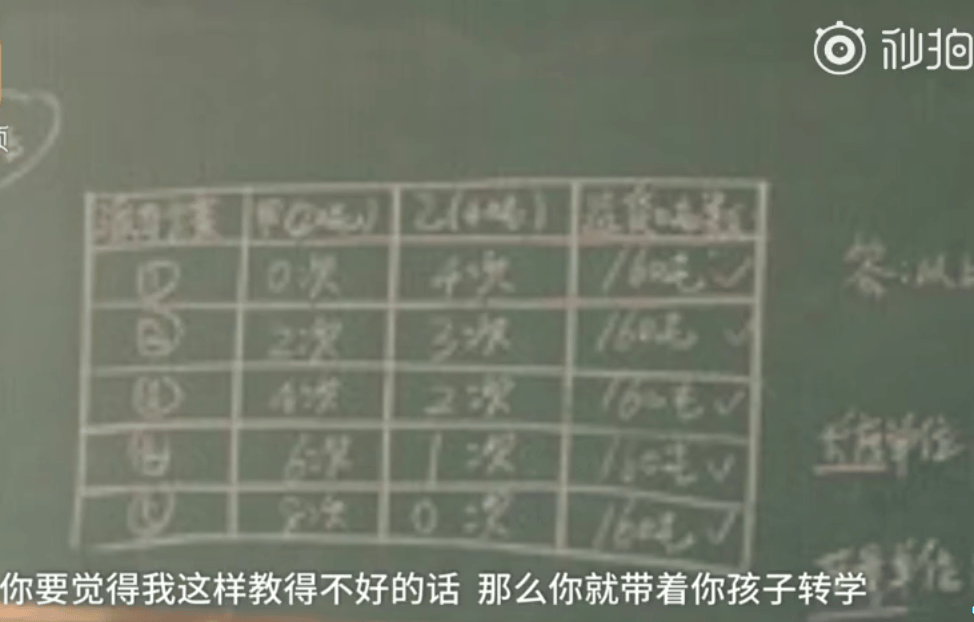 秒拍
① 0次 4次 160吨 ✓
② 2次 3次 160吨 ✓
③ 4次 2次 160吨 ✓
④ 6次 1次 160吨 ✓
⑤ 8次 0次 160吨 ✓
答:从
单位
单位
你要觉得我这样教得不好的话 那么你就带着你孩子转学